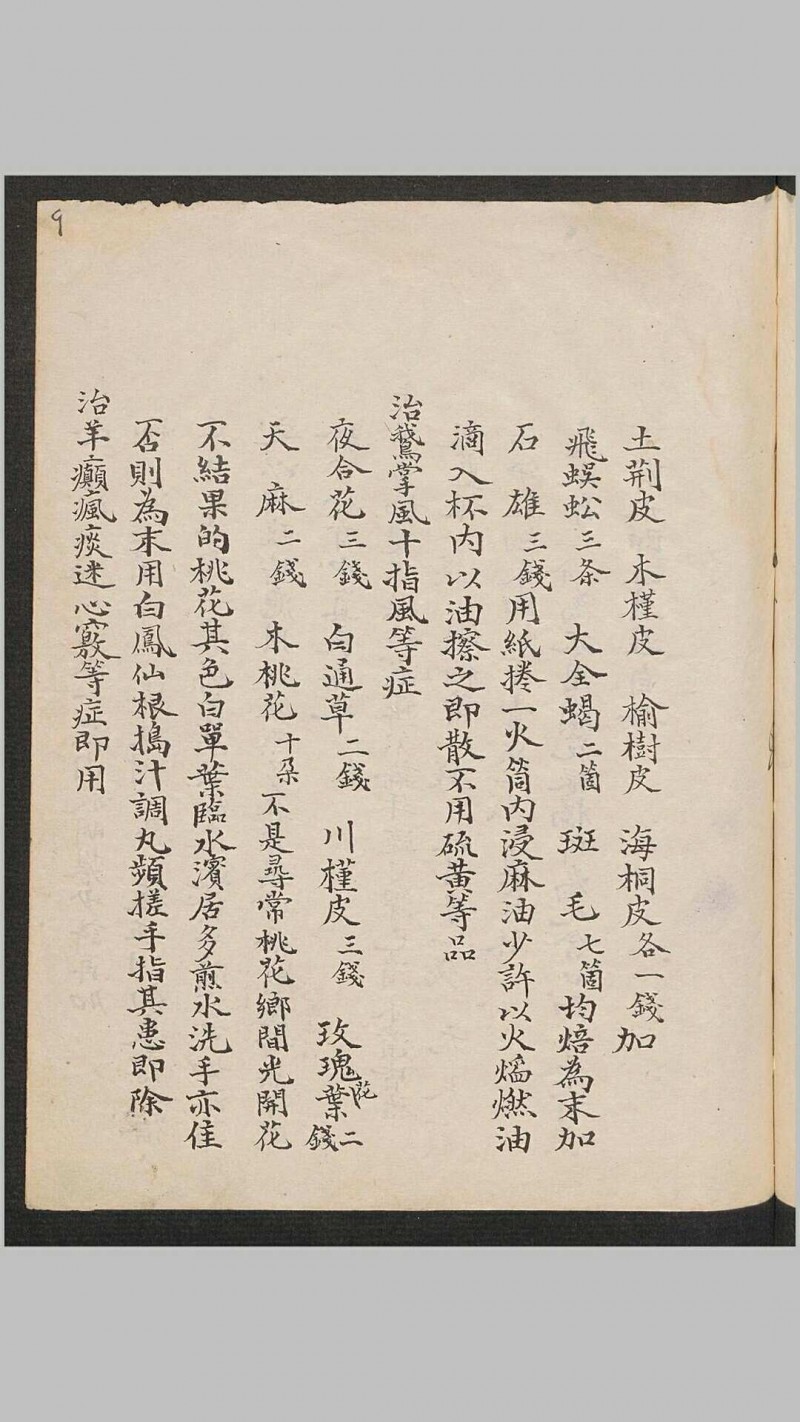 9
土荆皮 木槿皮 榆樹皮 海桐皮各一錢加
飛蜈蚣三条 大全蝎二箇 斑毛七箇均焙為末加
石雄三錢用紙捲一火筒內浸麻油少許以火燃油
滴入杯內以油擦之即散不用硫黃等品
治鵞掌風十指風等症
夜合花三錢 白通草二錢 川槿皮三錢 玫瑰花葉二錢
天麻二錢 木桃花十朵不是尋常桃花鄉間光開花
不結果的桃花其色白單葉臨水濱居多煎水洗手亦佳
否則為末用白鳳仙根搗汁調丸頻搓手指其患即除
治羊癲瘋痰迷心竅等症即用